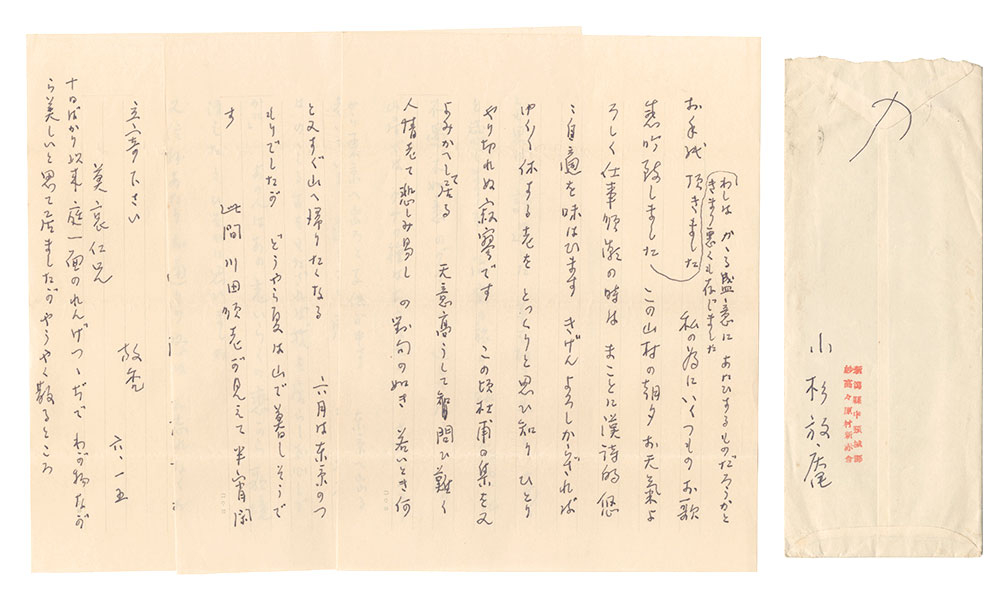 わしは かゝる盛意に あたひするものだろうかと
きまり悪くも存じました
お手紙 頂きました 私の為にいくつものお歌
感吟致しました この山村の朝夕 お天氣よ
ろしく仕事順潮の時は まことに漢詩的悠
々自適を味はひます きげんよろしからざれば
ゆく〱休する老を とつくりと思ひ知り ひとり
やり切れぬ寂寥です この頃杜甫の集を又
よみかへして居る 天意高うして問ひ難く
人情老て悲しみ易し の対句の如き 若いとき何
と又すぐ山へ帰りたくなる 六月は東京のつ
もりでしたが どうやら夏は山で暮しそうで
す 此間 川田順老が見えて 半宵閑
立寄下さい
莫哀仁兄 放庵
六、一五
十日ばかり以来 庭一面のれんげつゝぢで わが物なが
ら美しいと思て居ましたが やうやく散るところ
〆
新潟縣中頸城郡
妙高々原村新赤倉
小杉放庵